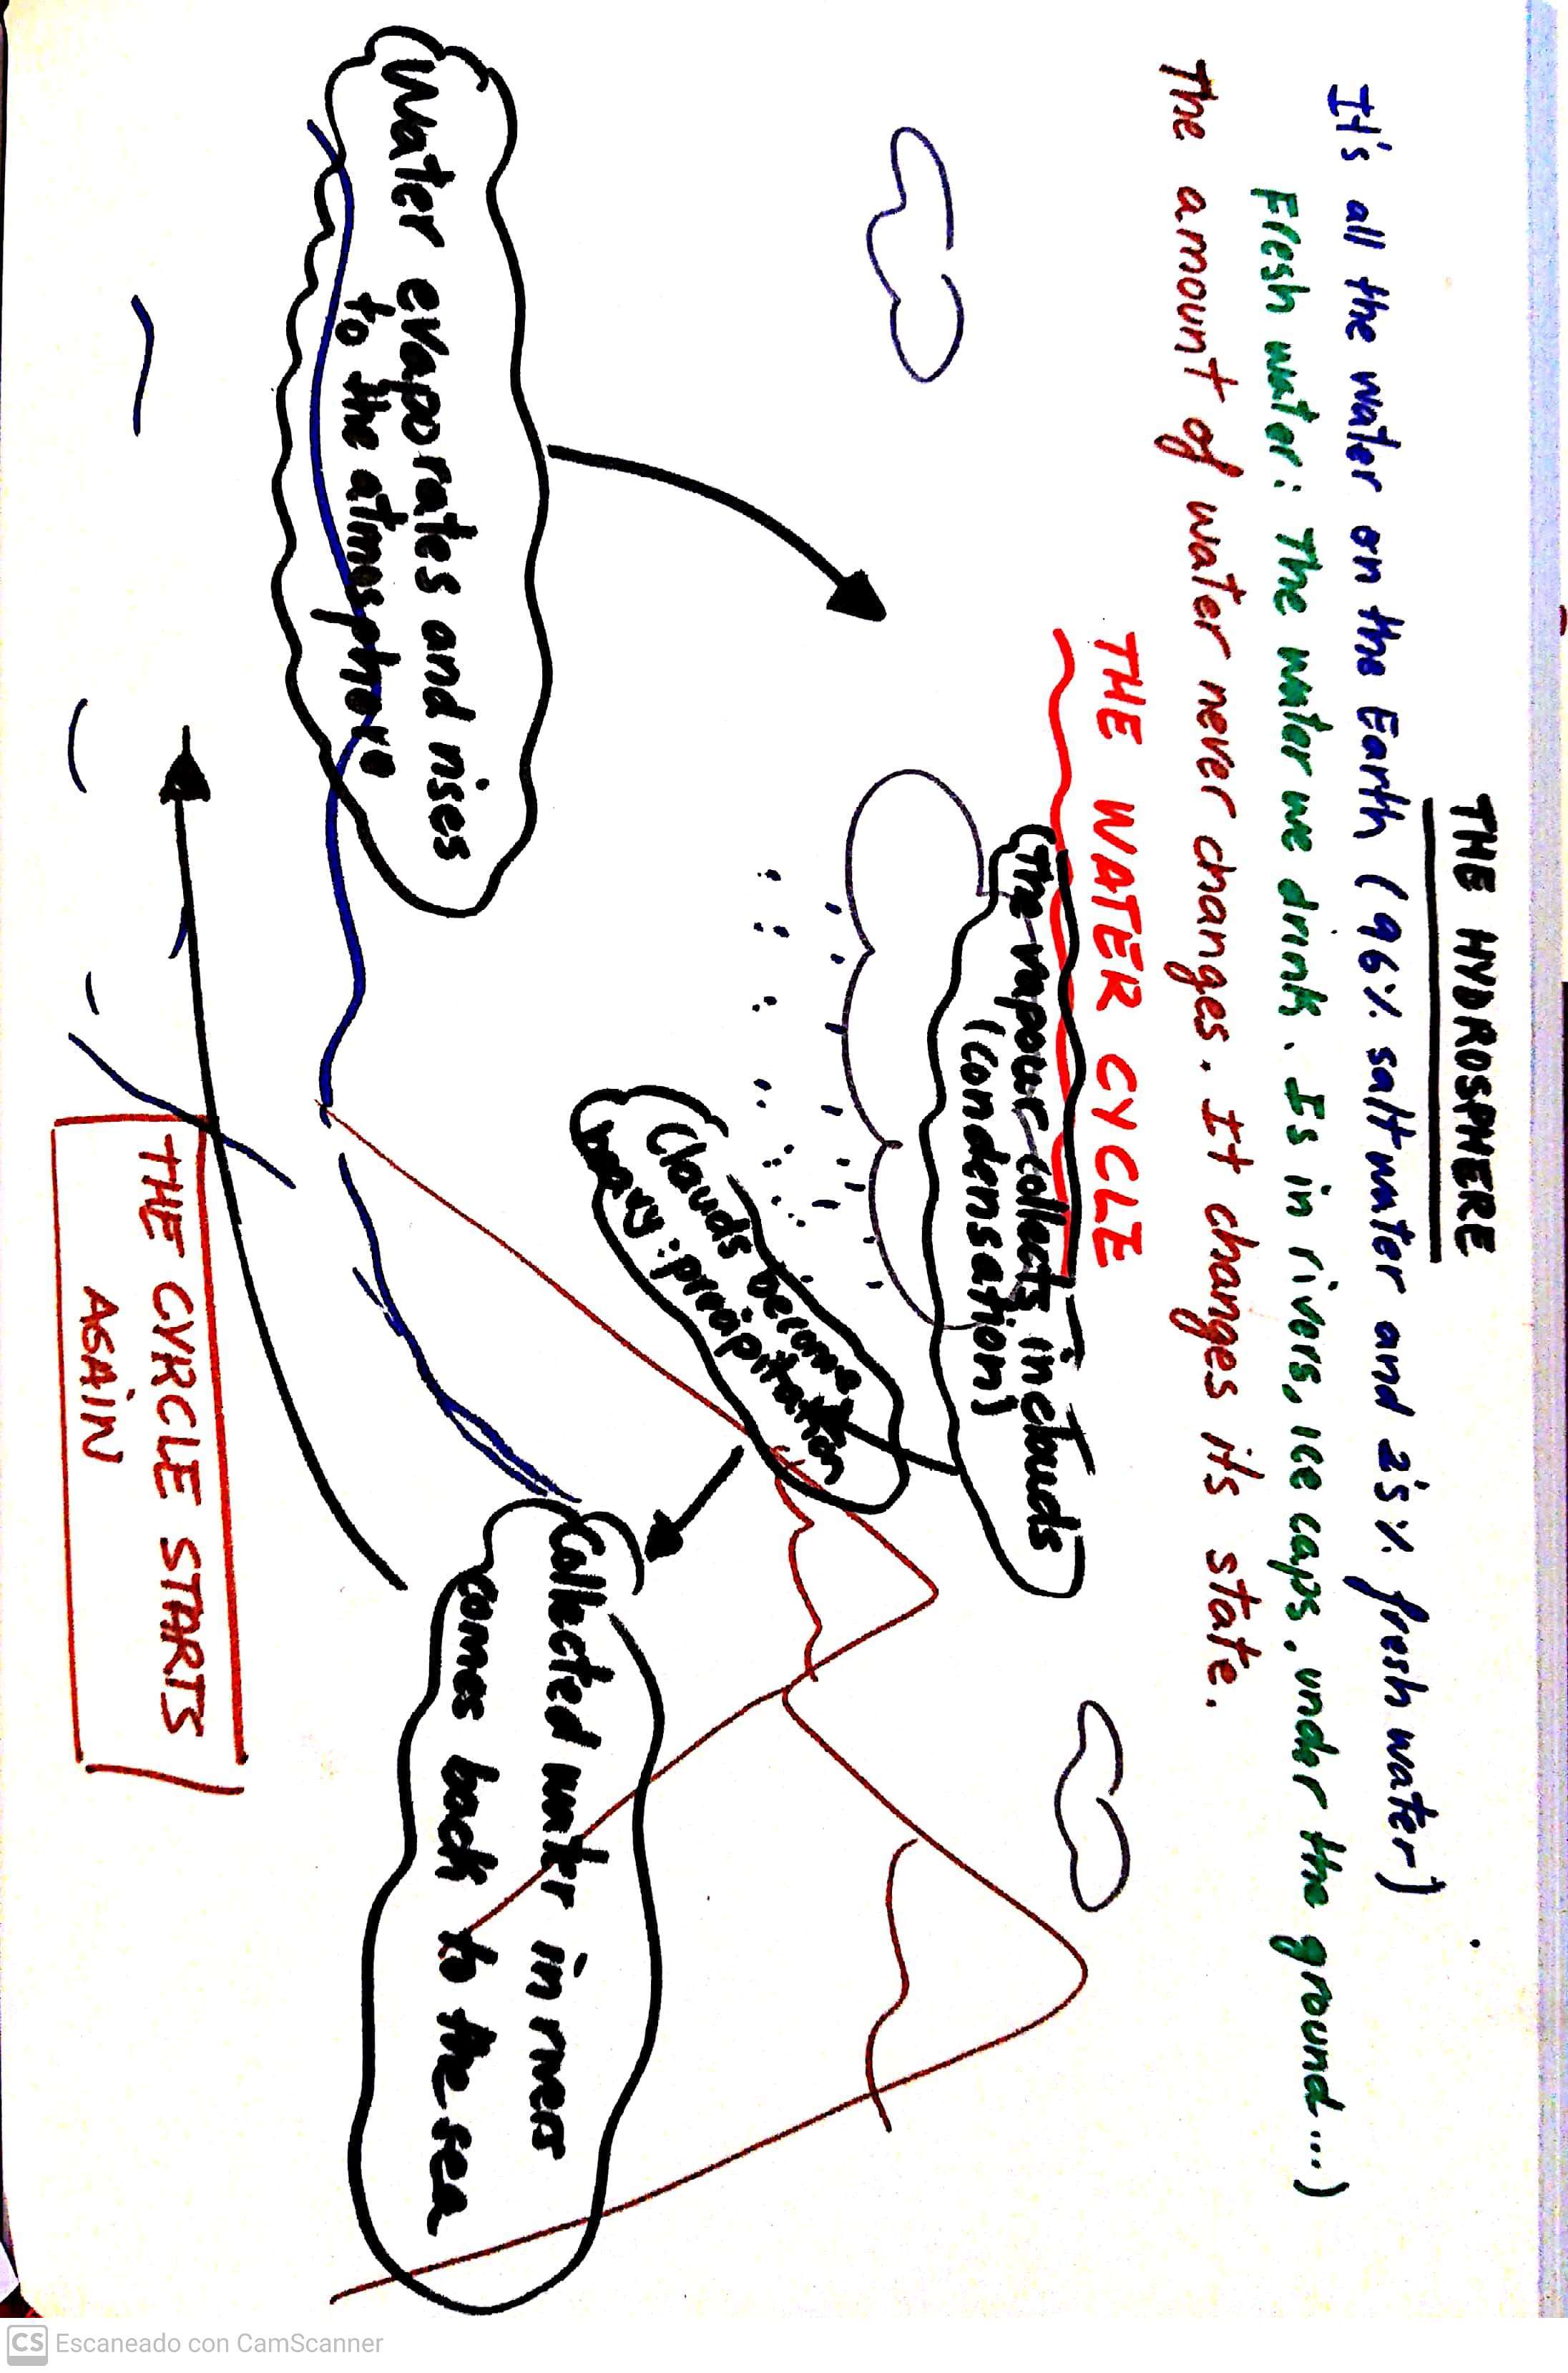 THE HYDROSPHERE
It's all the water on the Earth (96% salt water and 2'5% fresh water)
Flesh water: The water we drink. Is in rivers, ice caps, under the ground...)
The amount of water never changes. It changes its state.
THE WATER CYCLE
The vapour collects in clouds
(condensation)
Clouds become
precipitation
Water evaporates and rises
to the atmosphere
Collected water in rivers
comes back to the sea
THE CYRCLE STARTS
AGAIN
CS Escaneado con CamScanner